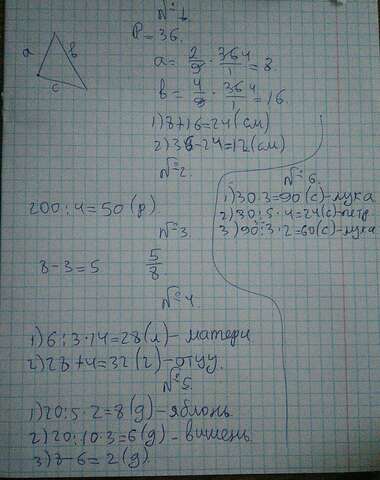 № 1.
P = 36.
a
b
c
a = 2/9 · 36 4/1 = 8.
b = 4/9 · 36 4/1 = 16.
1) 8+16=24(см)
2) 36-24=12(см)
№ 2.
200:4=50(р)
№ 3.
8-3=5 5/8
№ 4
1) 6:3·14=28(л)- матери
2) 28+4=32(г)-отцу.
№ 5.
1) 20:5·2=8(д)-яблонь
2) 20:10·3=6(д)-вишень
3) 8-6=2(д)
№ 6.
1) 30·3=90(с)-лука
2) 30:5·4=24(с)-петр
3) 90:3·2=60(с)-лука